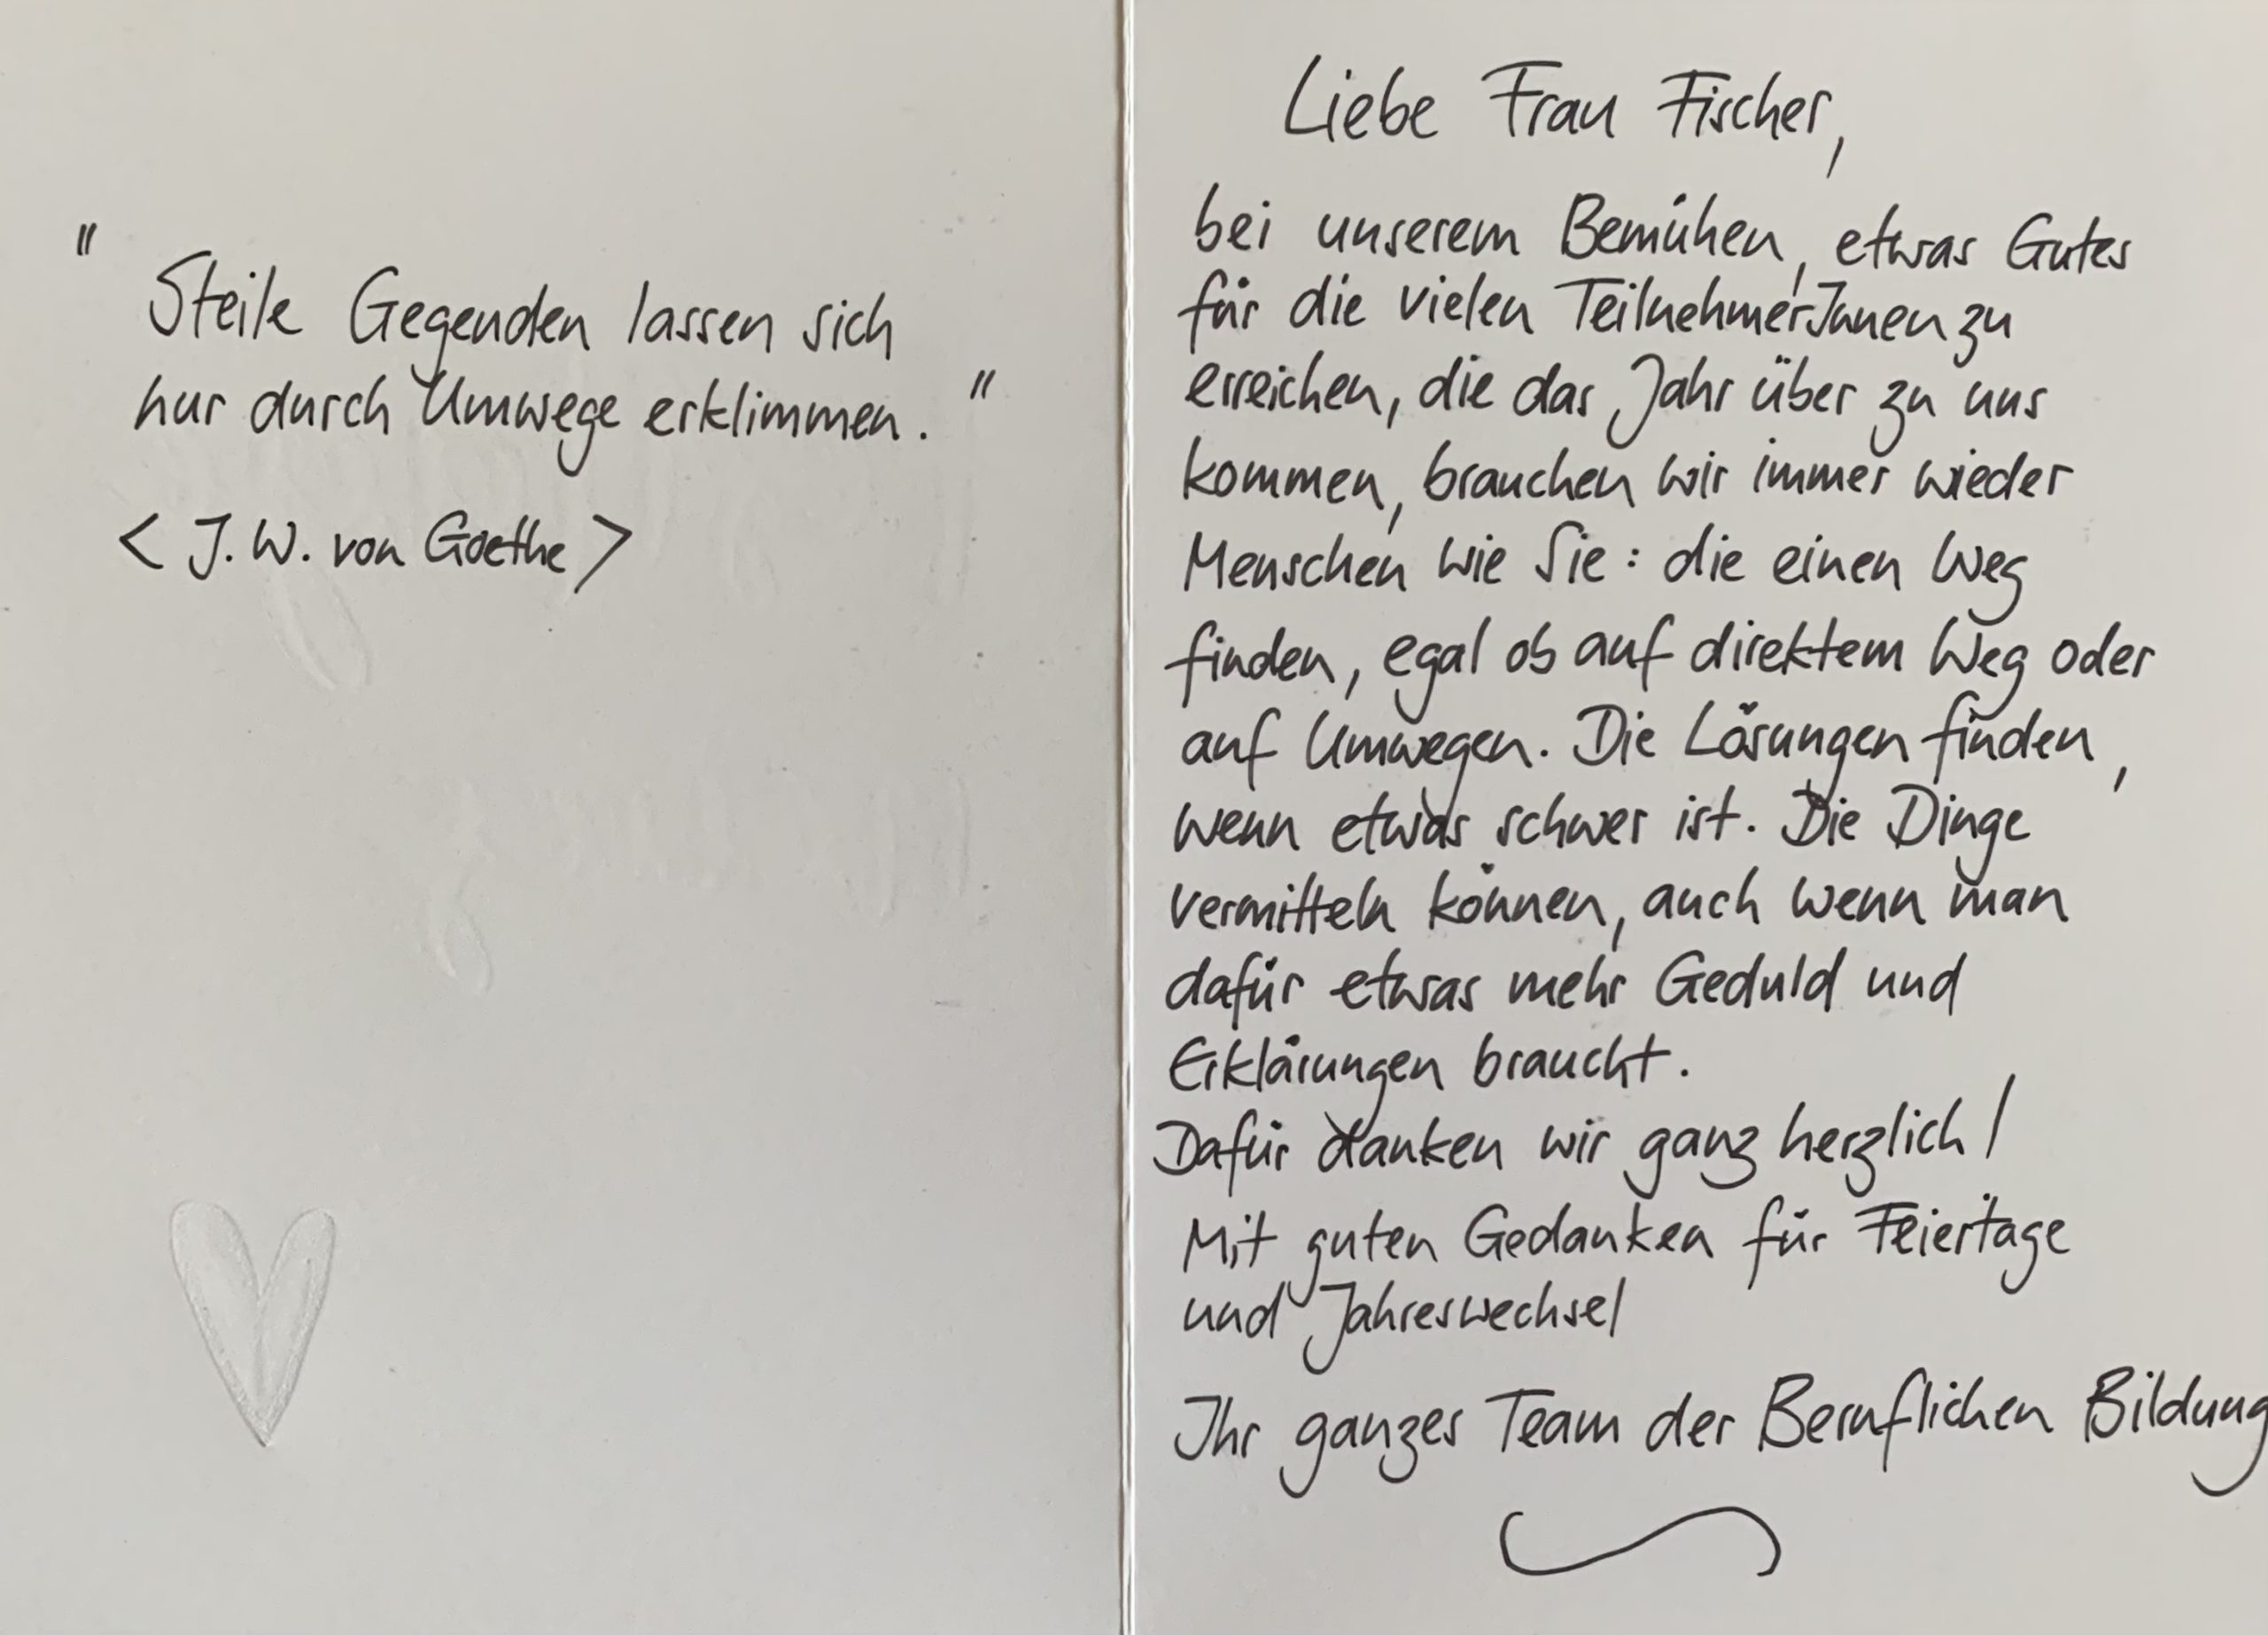 "Steile Gegenden lassen sich
nur durch Umwege erklimmen."
< J. W. von Goethe >
Liebe Frau Fischer,
bei unserem Bemühen, etwas Gutes
für die vielen TeilnehmerInnen zu
erreichen, die das Jahr über zu uns
kommen, brauchen wir immer wieder
Menschen wie Sie: die einen Weg
finden, egal ob auf direktem Weg oder
auf Umwegen. Die Lösungen finden,
wenn etwas schwer ist. Die Dinge
vermitteln können, auch wenn man
dafür etwas mehr Geduld und
Erklärungen braucht.
Dafür danken wir ganz herzlich!
Mit guten Gedanken für Feiertage
und Jahreswechsel
Ihr ganzes Team der Beruflichen Bildung